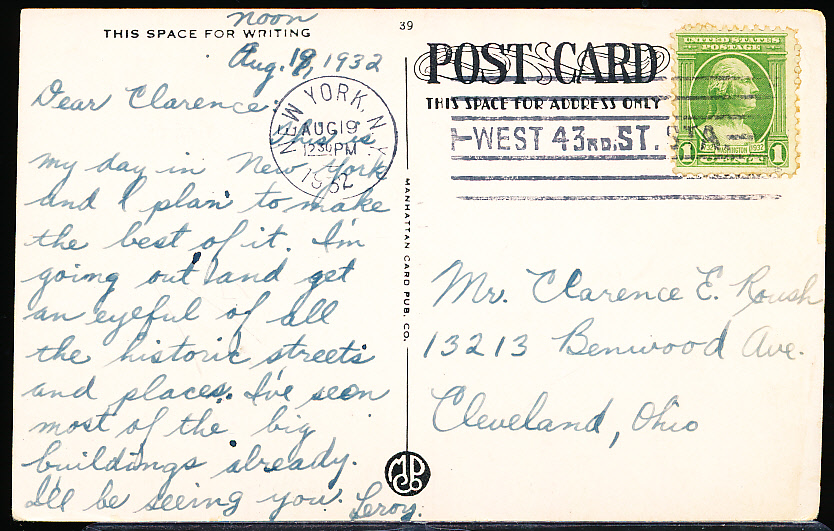 noon
THIS SPACE FOR WRITING
Aug. 19, 1932
Dear Clarence:
This is
my day in New York
and I plan to make
the best of it. I'm
going out and get
an eyeful of all
the historic streets
and places. I've seen
most of the big
buildings already.
I'll be seeing you. Leroy.
39
MANHATTAN CARD PUB. CO.
NEW YORK, N.Y.
AUG 19
12 30 PM
1932
POST CARD
THIS SPACE FOR ADDRESS ONLY
WEST 43RD. ST. STA.
UNITED STATES
POSTAGE
1732 WASHINGTON 1932
1 1
Mr. Clarence E. Roush
13213 Benwood Ave.
Cleveland, Ohio